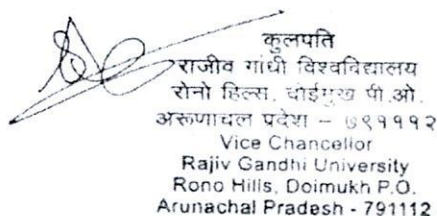 कुलपति
राजीव गांधी विश्वविद्यालय
रोनो हिल्स, दोईमुख पी.ओ.
अरूणाचल प्रदेश – ७९१११२
Vice Chancellor
Rajiv Gandhi University
Rono Hills, Doimukh P.O.
Arunachal Pradesh - 791112